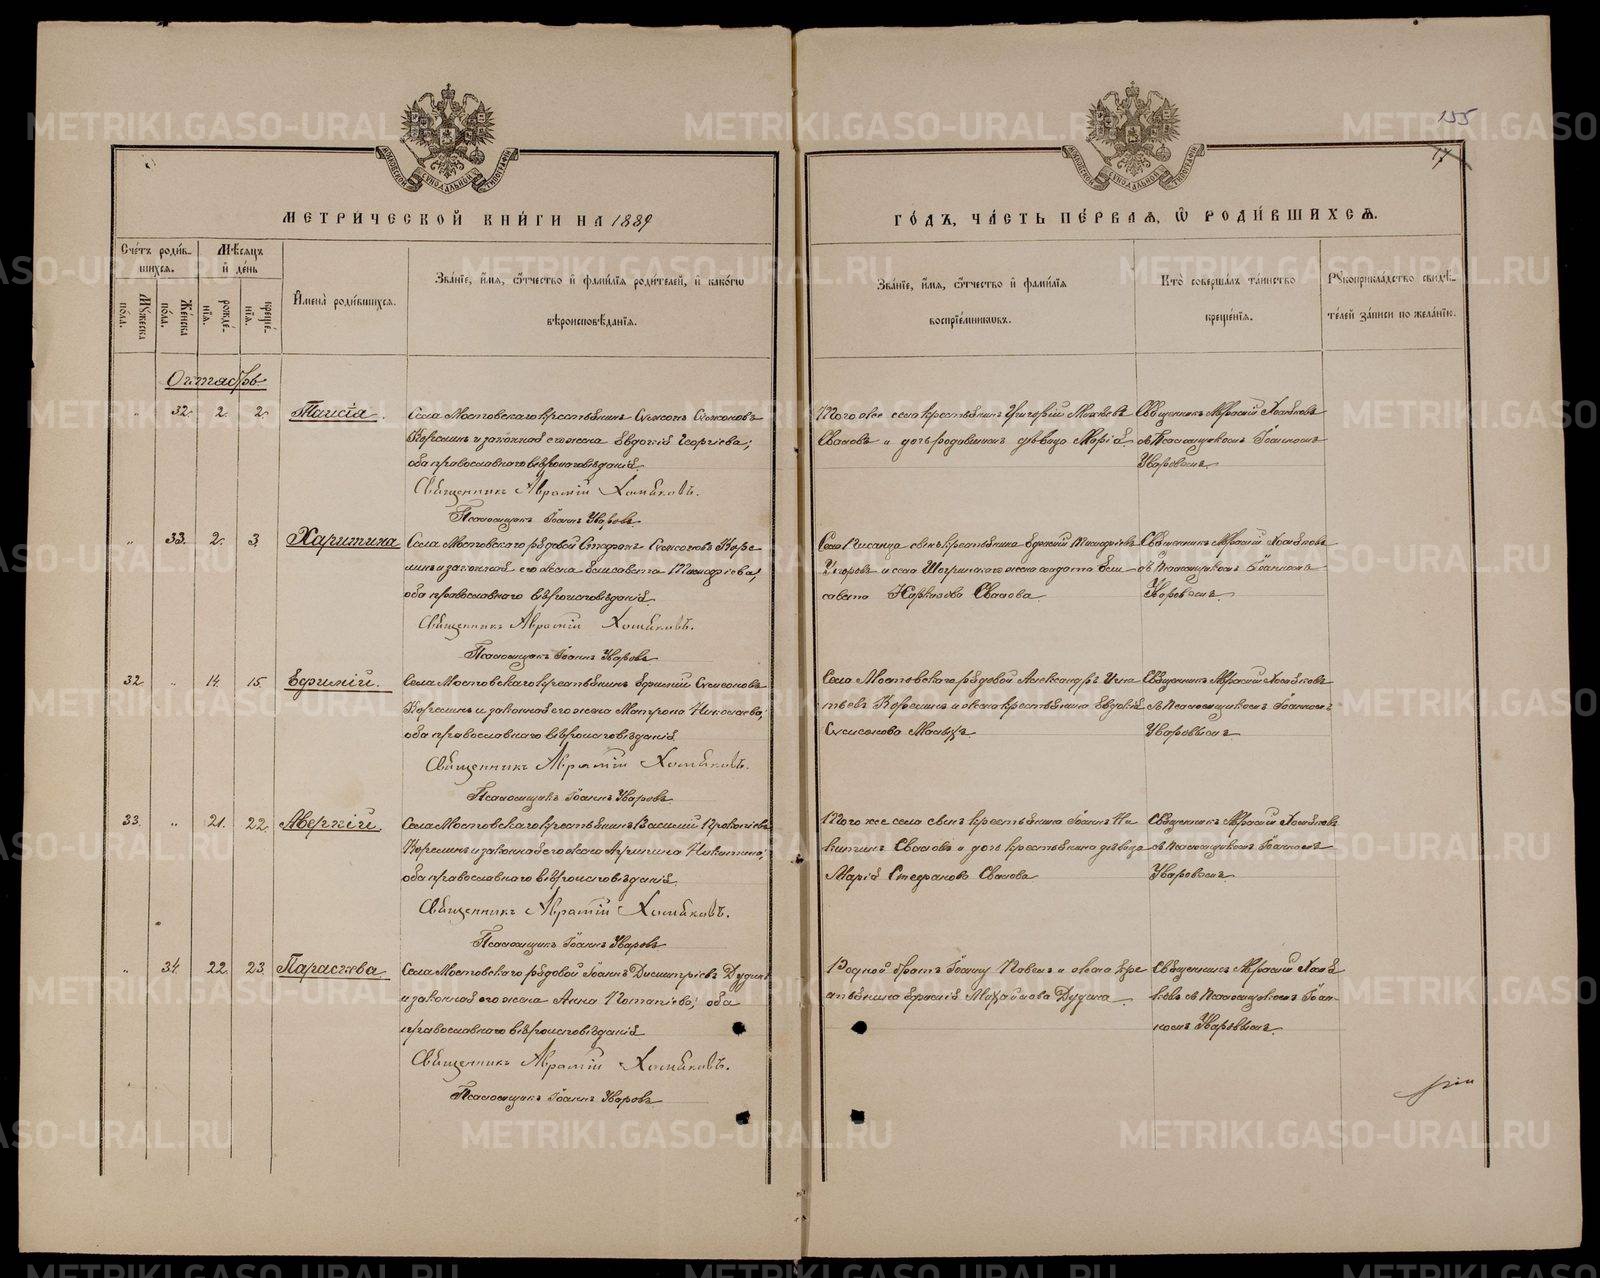 155
17
МОСКОВСКОЙ СУНОДАЛЬНОЙ ТИПОГРАФІИ
МОСКОВСКОЙ СУНОДАЛЬНОЙ ТИПОГРАФІИ
МЕТРИЧЕСКОЙ КНИ́ГИ НА 1889
ГО́ДЪ, ЧА́СТЬ ПЕ́РВАЯ, Ѿ РОДИ́ВШИХСѦ.
Сче́тъ роди́в-
шихсѧ.
Мѣ́сѧцъ
и҆ де́нь
Мꙋ́жеска по́ла.
Же́нска по́ла.
рожде́-нїѧ.
креще́-нїѧ.
И҆мена̀ роди́вшихсѧ.
Зва́нїе, и҆́мѧ, ѻ҆́тчество и҆ фами́лїѧ роди́телей, и҆ како́гѡ
вѣроисповѣ́данїѧ.
Зва́нїе, и҆́мѧ, ѻ҆́тчество и҆ фами́лїѧ
воспрїе́мникѡвъ.
Кто̀ соверша́лъ та́инство
креще́нїѧ.
Рꙋкоприкла́дство свидѣ́-
телей за́писи по жела́нїю.
Октябрь
" 32. 2. 2. Таисія.
Села Мостовскаго крестьянинъ Симеонъ Симеоновъ
Корелинъ и законная его жена Евдокія Георгіева;
оба православнаго вѣроисповѣданія.
Священникъ Аврамій Хомяковъ.
Псаломщикъ Іоаннъ Уваровъ
Того же села крестьянинъ Григорій Матвѣевъ
Сваловъ и дочь родившихъ дѣвица Марія.
Священникъ Аврамій Хомяковъ
съ Псаломщикомъ Іоанномъ
Уваровымъ.
" 33. 2. 3. Харитина
Села Мостовскаго рядовой Стефанъ Симеоновъ Коре
линъ и законная его жена Елисавета
оба православнаго вѣроисповѣданія.
Священникъ Аврамій Хомяковъ.
Псаломщикъ Іоаннъ Уваровъ
Села сынъ крестьянина Ефимій
Егоровъ и села жена солдата Ели
савета Свалова.
Священникъ Аврамій Хомяковъ
съ Псаломщикомъ Іоанномъ
Уваровымъ.
32 " 14. 15. Ефимій.
Села Мостовскаго крестьянинъ Ефимій Симеоновъ
Корелинъ и законная его жена Матрона Николаева;
оба православнаго вѣроисповѣданія.
Священникъ Аврамій Хомяковъ.
Псаломщикъ Іоаннъ Уваровъ
Села Мостовскаго рядовой Александръ Игна
тьевъ Корелинъ и жена крестьянина Евдокія
Симеонова
Священникъ Аврамій Хомяковъ
съ Псаломщикомъ Іоанномъ
Уваровымъ
33. " 21. 22. Аверкій
Села Мостовскаго крестьянинъ Василій Прокопіевъ
Корелинъ и законная его жена Агрипина Никитина;
оба православнаго вѣроисповѣданія.
Священникъ Аврамій Хомяковъ.
Псаломщикъ Іоаннъ Уваровъ
Того же села сынъ крестьянина Іоаннъ Ни
китинъ Сваловъ и дочь крестьянина дѣвица
Марія Стефанова Свалова
Священникъ Аврамій Хомяковъ
съ Псаломщикомъ Іоанномъ
Уваровымъ.
" 34. 22. 23. Параскева
Села Мостовскаго рядовой Іоаннъ Димитріевъ Дудинъ
и законная его жена Анна Потапіева; оба
православнаго вѣроисповѣданія
Священникъ Аврамій Хомяковъ.
Псаломщикъ Іоаннъ Уваровъ
Родной братъ Іоанну Павелъ и жена кре
стьянина Михайлова Дудина.
Священникъ Аврамій Хомя
ковъ съ Псаломщикомъ Іоан-
номъ Уваровымъ.
METRIKI.GASO-URAL.RU